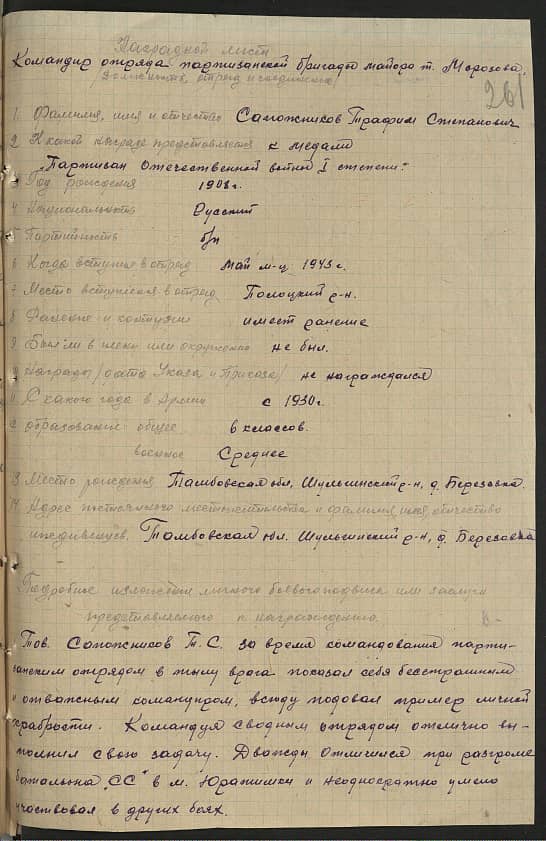 Наградной лист
Командир отряда партизанской бригады майора т. Морозова,
(должность, отряд и соединение)
261
1. Фамилия, имя и отчество Сапожников Трафим Степанович
2. К какой награде представляется к медали
„Партизан Отечественной войны I степени."
3 Год рождения 1908 г.
4 Национальность Русский
5 Партийность б/п
6 Когда вступил в отряд май м-ц 1943 г.
7 Место вступления в отряд Полоцкий р-н.
8 Ранение и контузии имеет ранение
9 Был ли в плену или окружении не был.
10 Награды (дата Указа и Приказа) не награждался
11 С какого года в Армии с 1930 г.
12 Образование общее 6 классов.
военное Среднее
13 Место рождения Тамбовская обл, Шульгинский р-н, д. Березовка.
14 Адрес постоянного местожительства и фамилия имя отчество
иждивенцев. Тамбовская обл. Шульгинский р-н, д. Березовка
Подробное изложение личного боевого подвига или заслуги
представляемого к награждению.
Тов. Сапожников Т.С. за время командования парти-
занским отрядом в тылу врага показал себя бесстрашным
и отважным командиром, всюду подовал пример личной
храбрости. Командуя сводным отрядом отлично вы-
полнил свою задачу. Дважды отличился при разгроме
батальона „СС" в м. и неоднократно умело
участвовал в других боях.